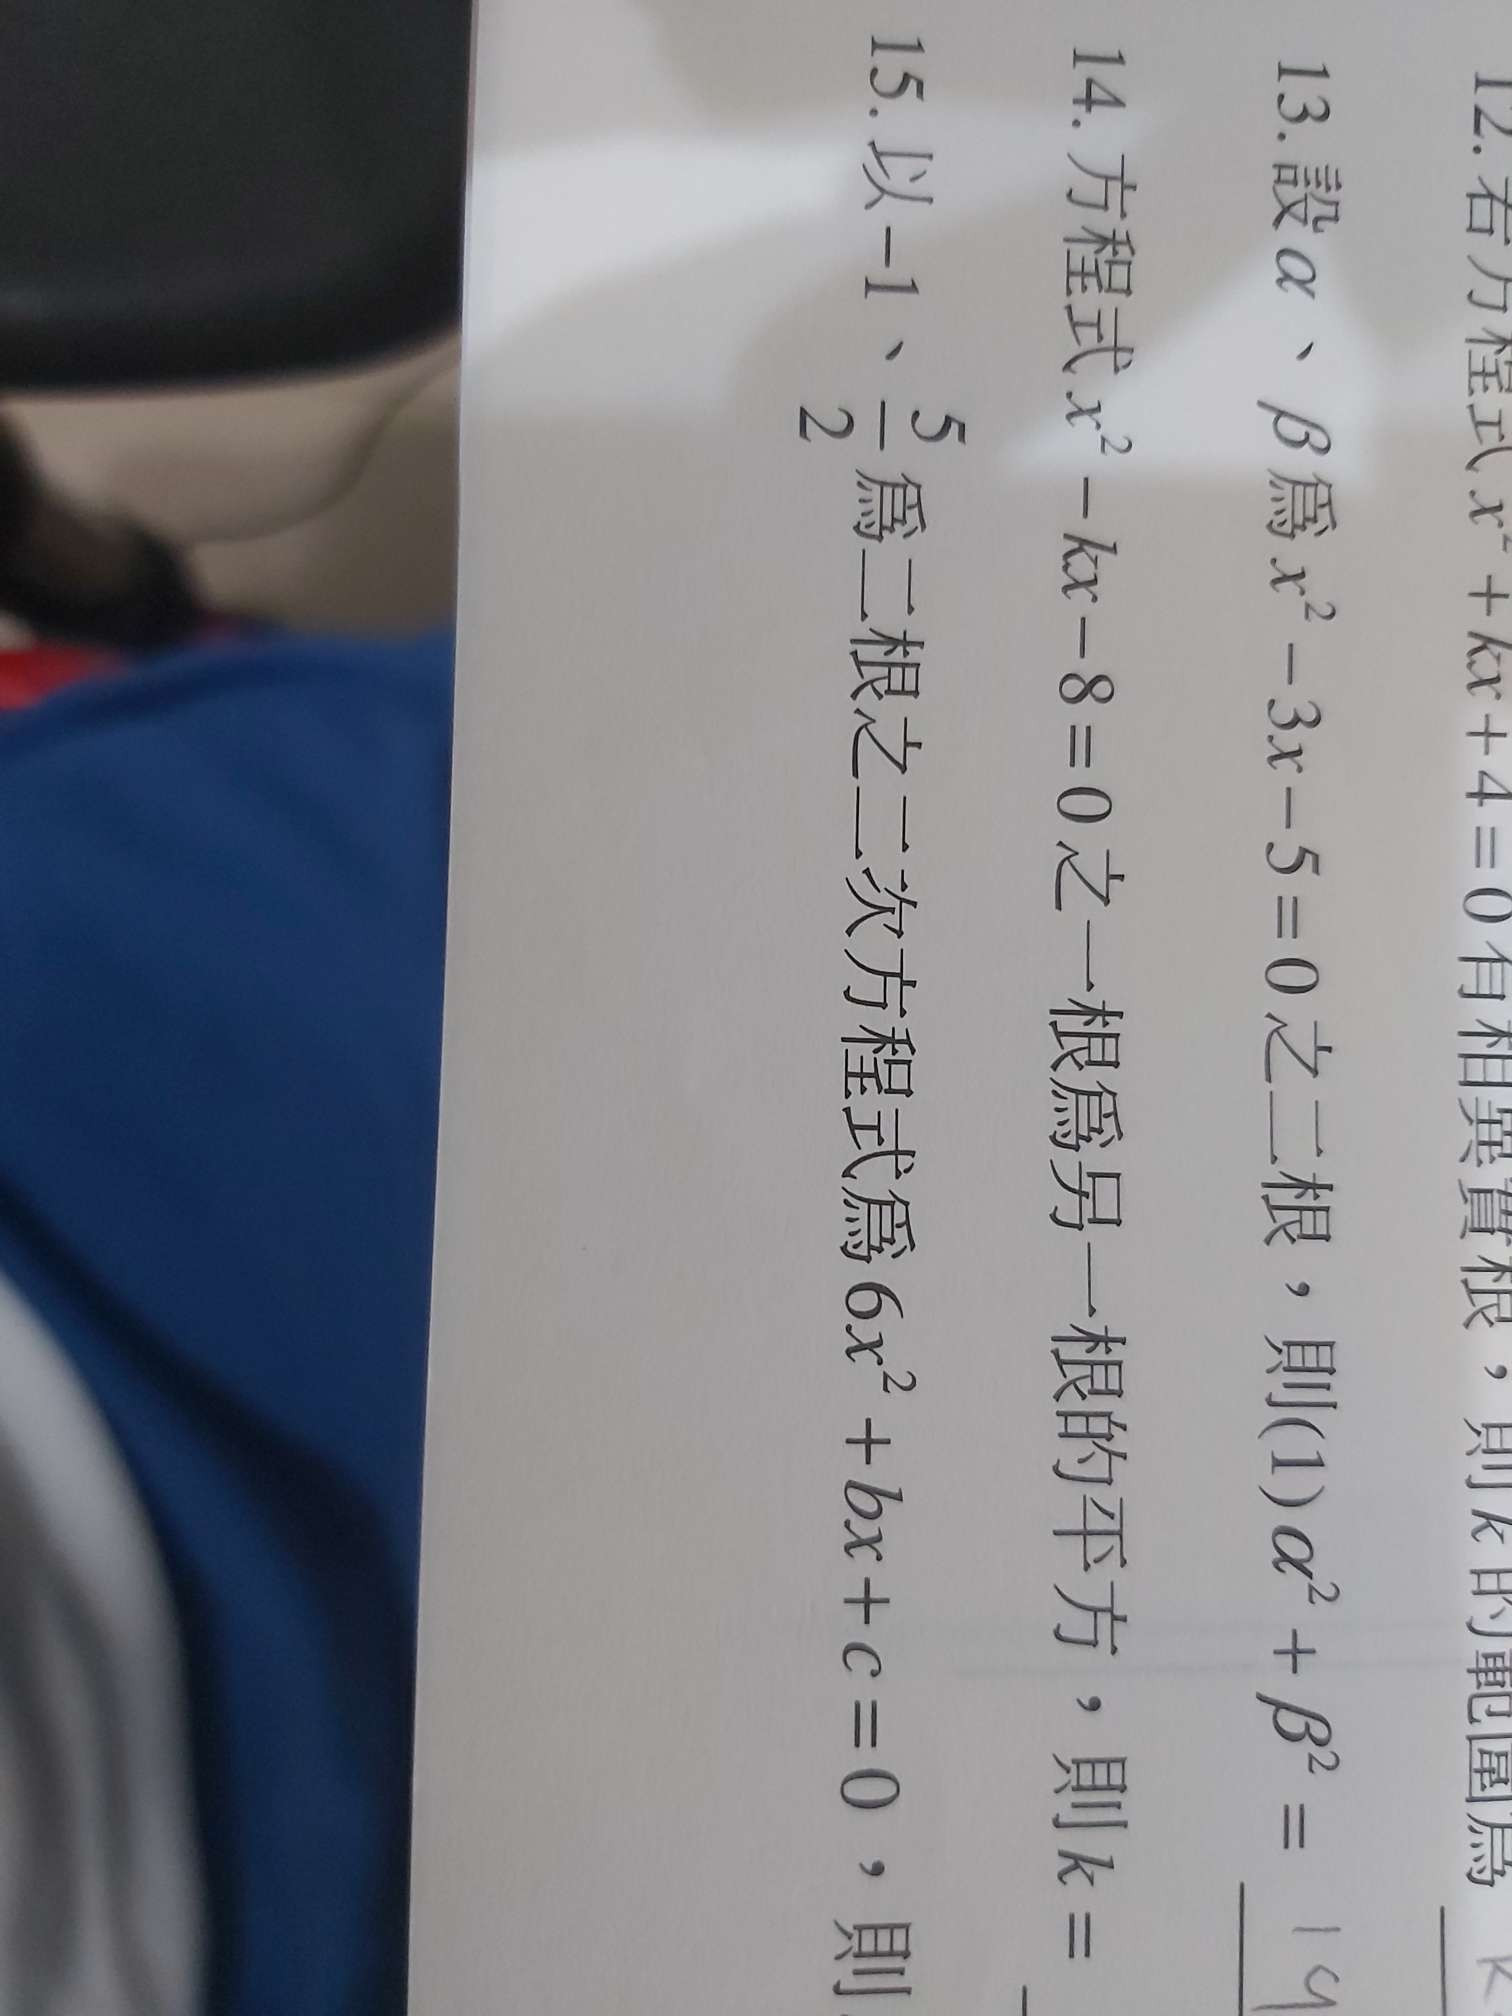 12. 若方程式 x² + kx + 4 = 0 有相異實根，則 k 的範圍為 k
13. 設 α、β 為 x² − 3x − 5 = 0 之二根，則(1) α² + β² = 19
14. 方程式 x² − kx − 8 = 0 之一根為另一根的平方，則 k =
15. 以 −1、5/2 為二根之二次方程式為 6x² + bx + c = 0，則